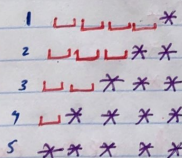 1 ␣ ␣ ␣ ␣ *
2 ␣ ␣ ␣ * *
3 ␣ ␣ * * *
4 ␣ * * * *
5 * * * * *